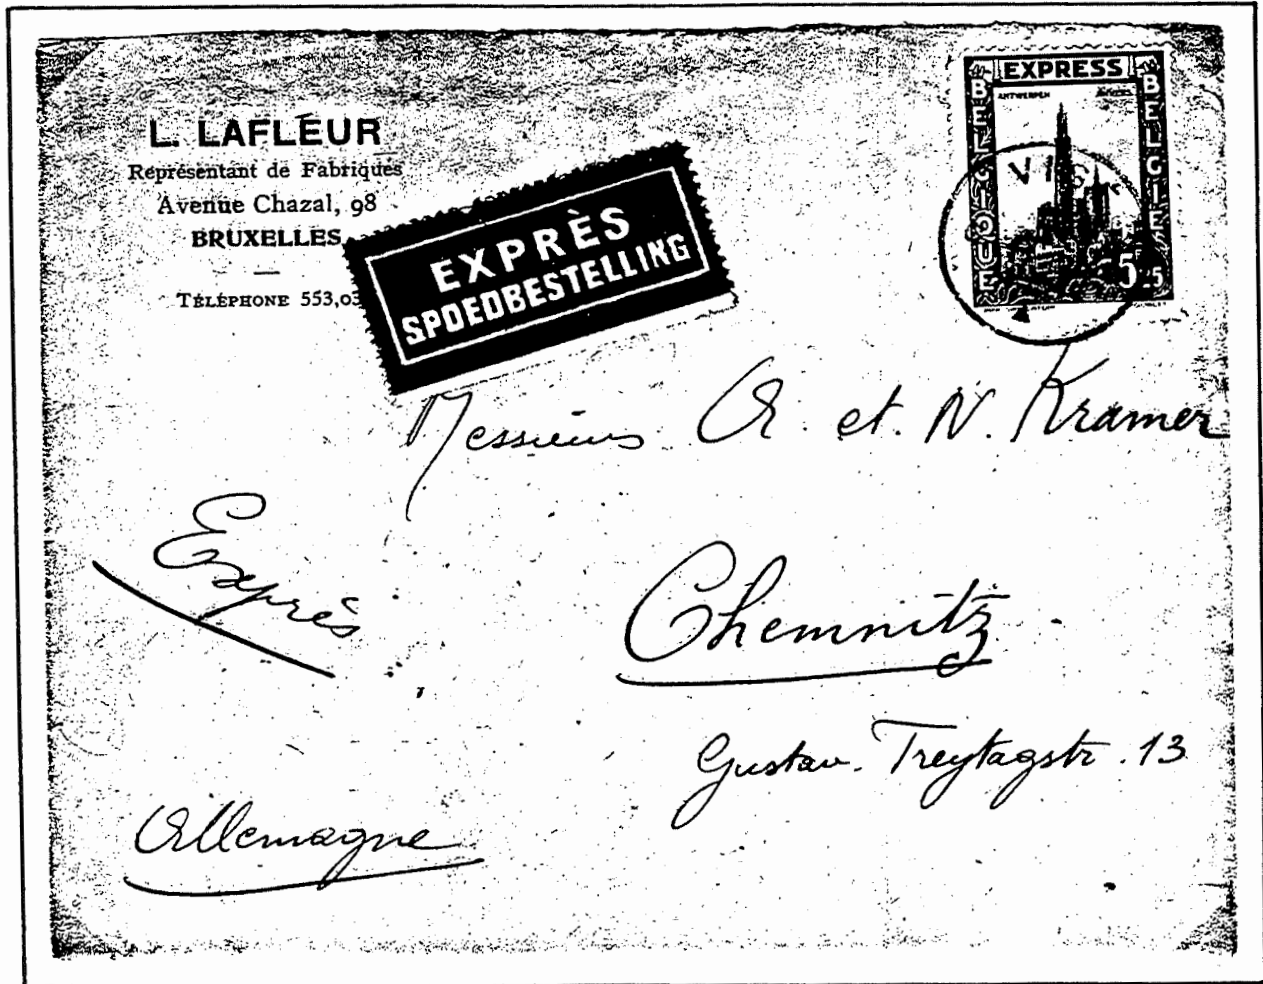 L. LAFLEUR
Représentant de Fabriques
Avenue Chazal, 98
BRUXELLES
TÉLÉPHONE 553,03
EXPRÈS
SPOEDBESTELLING
EXPRESS
ANTWERPEN
BELGIQUE
BELGIE
5
Messieurs A. et. N. Kramer
Exprès
Chemnitz
Gustav. Freytagstr. 13
Allemagne